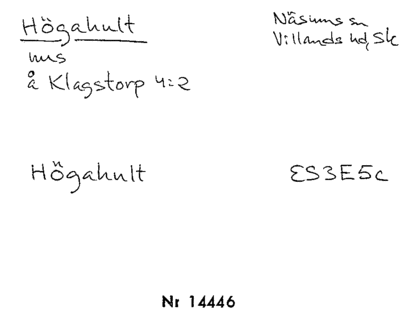 Högahult
Näsums sn
Villands hd, Sk
mrs
å Klagstorp 4:2
Högahult
ES3E5c
Nr 14446